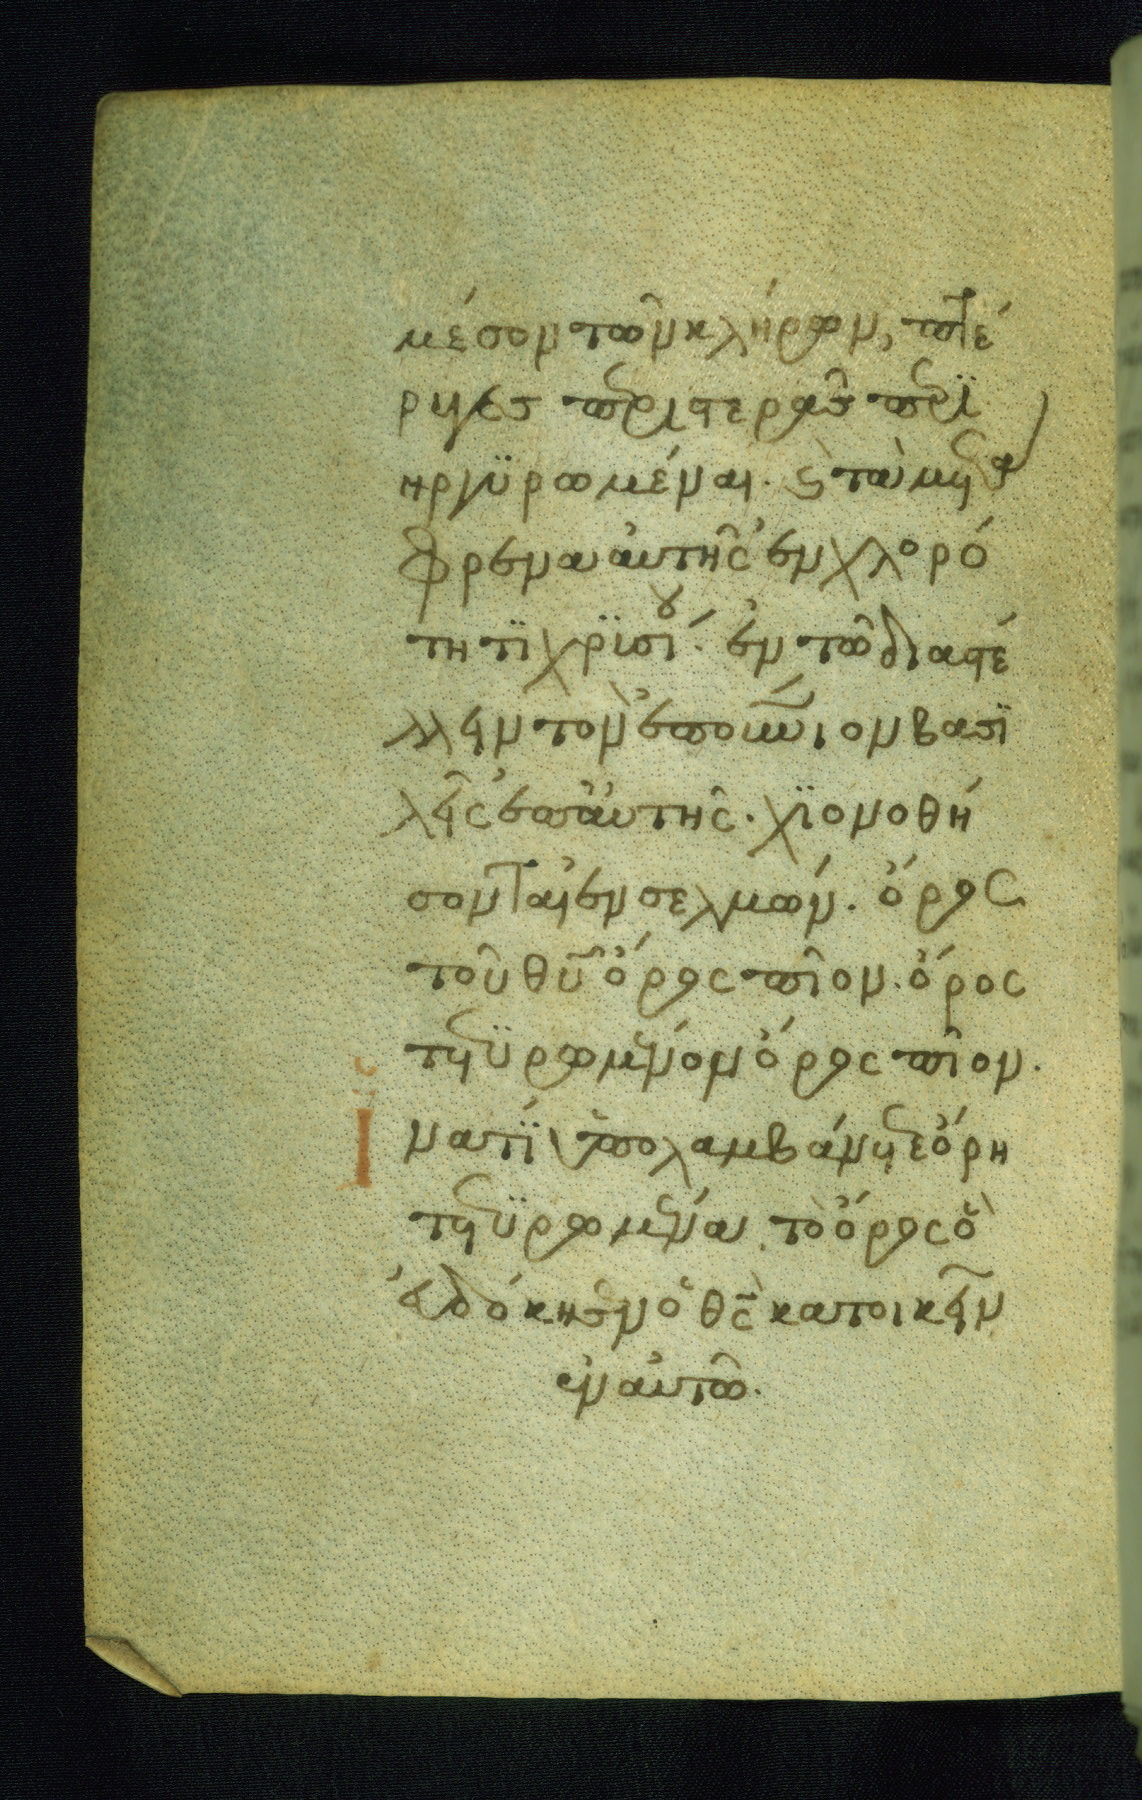 μέσον τῶν κλήρων, πτέ
ρυγες περιστερᾶς περϊ
ηργϋρωμέναι. καὶ τὰ μετά
φρενα αὐτῆς ἐν χλορό
τητϊ χρϊσίου. ἐν τῶ διαστέ
λλειν τὸν ἐπουνιον βασϊ
λεῖς ἐπ αὐτῆς. χϊονοθή
σονται ἐν σελμών. ὄρος
τοῦ θῦ ὄρος πῖον. ὄρος
τετϋρωμένον ὄρος πῖον.
Ἵνατϊ ὑπολαμβάνετε ὄρη
τετϋρωμένα, τὸ ὄρος ὃ
ἐυδόκησεν ὁ θς κατοικεῖν
ἐν αὐτῶ.